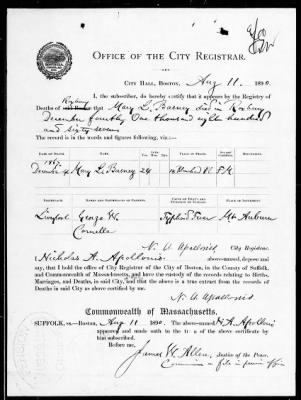 OFFICE OF THE CITY REGISTRAR.
CITY HALL, BOSTON, Aug 11. 1890.
I, the subscriber, do hereby certify that it appears by the Registry of
Roxbury
Deaths of that Mary L. Barney died in Roxbury
December fourth, One thousand eight hundred
and sixty seven
The record is in words and figures following, viz.:
DATE OF DEATH.
PLACE OF DEATH.
1867.
December 4 Mary L. Barney 24
NAMES AND BIRTHPLACES OF PARENTS.
George W. Typhoid Fever Mt Auburn
Cornelia
N. A. Apollonio City Registrar.
Nicholas A. Apollonio above-named, depose and
say, that I hold the office of City Registrar of the City of Boston, in the County of Suffolk,
and Commonwealth of Massachusetts, and have the custody of the records relating to Births,
Marriages, and Deaths, in said City, and that the above is a true extract from the records of
Deaths in said City as above certified by me.
N. A. Apollonio
Commonwealth of Massachusetts.
SUFFOLK, ss.—Boston, Aug 11 1890. The above-named N. A. Apollonio
appeared and made oath to the truth of the above certificate by
him subscribed.
Before me,
James W. Allen, Justice of the Peace.